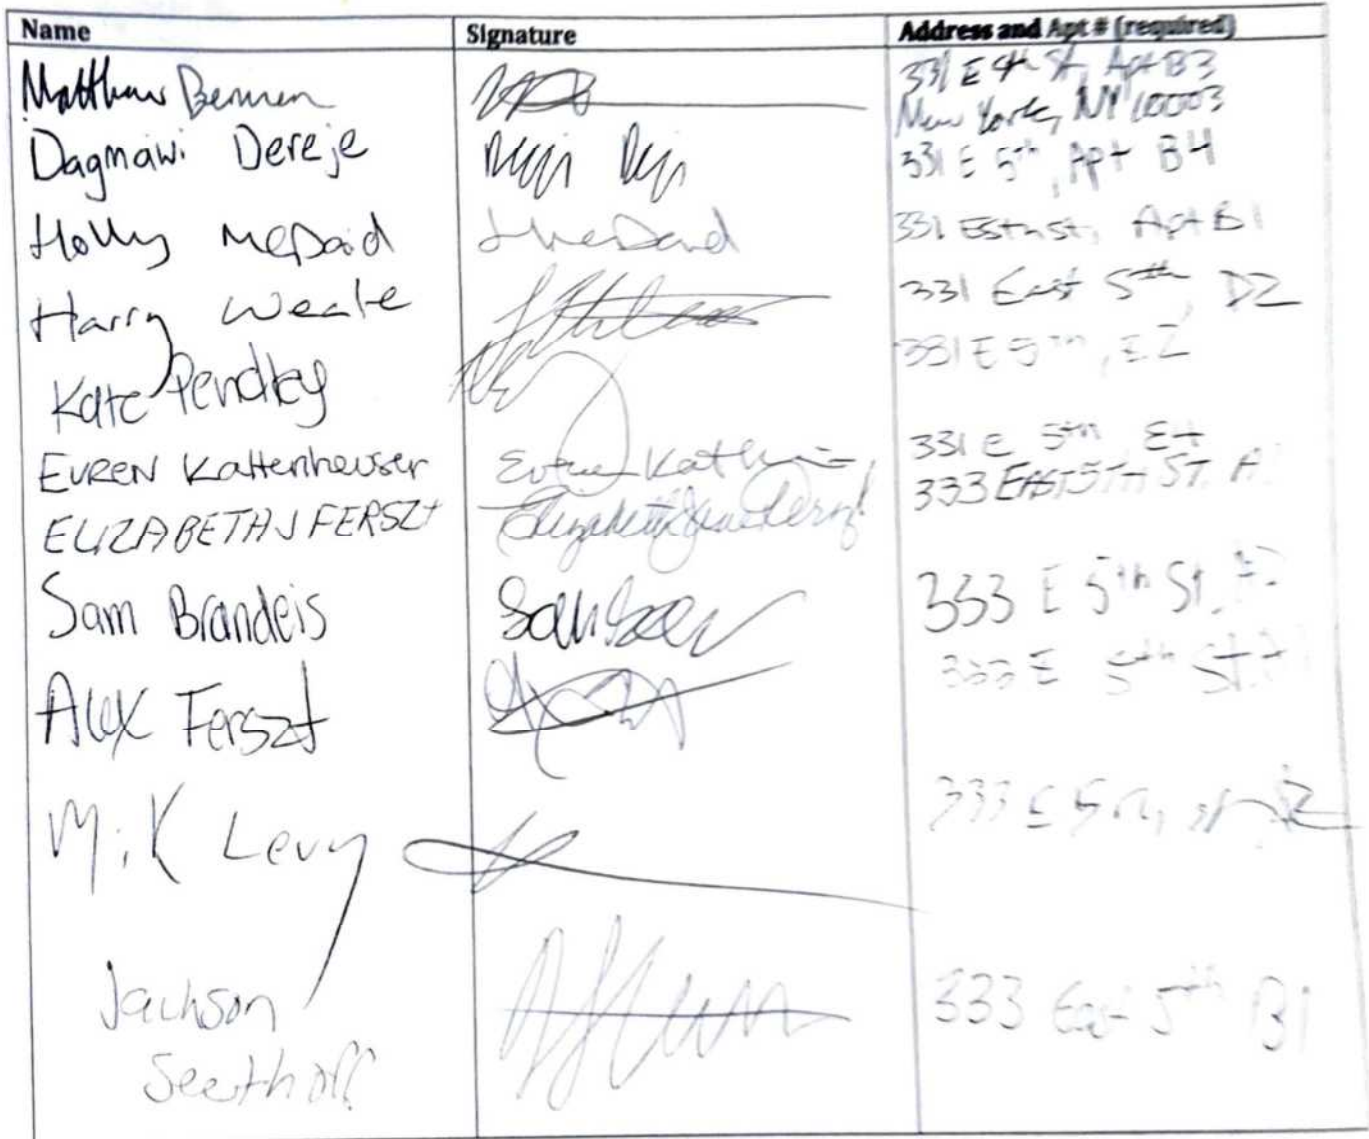 Name Signature Address and Apt # (required)
Matthew 331 E St, Apt B3
New York, NY 10003
Dagmawi Dereje 331 E 5th, Apt B4
Holly McDaid HMcDaid 331 E 5th st, Apt B1
Harry Weate 331 East 5th, D2
Kate Pendley 331 E 5th, E2
EVREN Kattenheuser 331 E 5th E4
ELIZABETH J FERSZt 333 EAST 5TH ST. A
Sam Brandeis 333 E 5th St.
Alex Ferszt 333 E 5th St.
Mik Levy 333 E 5th,
Jackson 333 East 5th B1
Seethoff